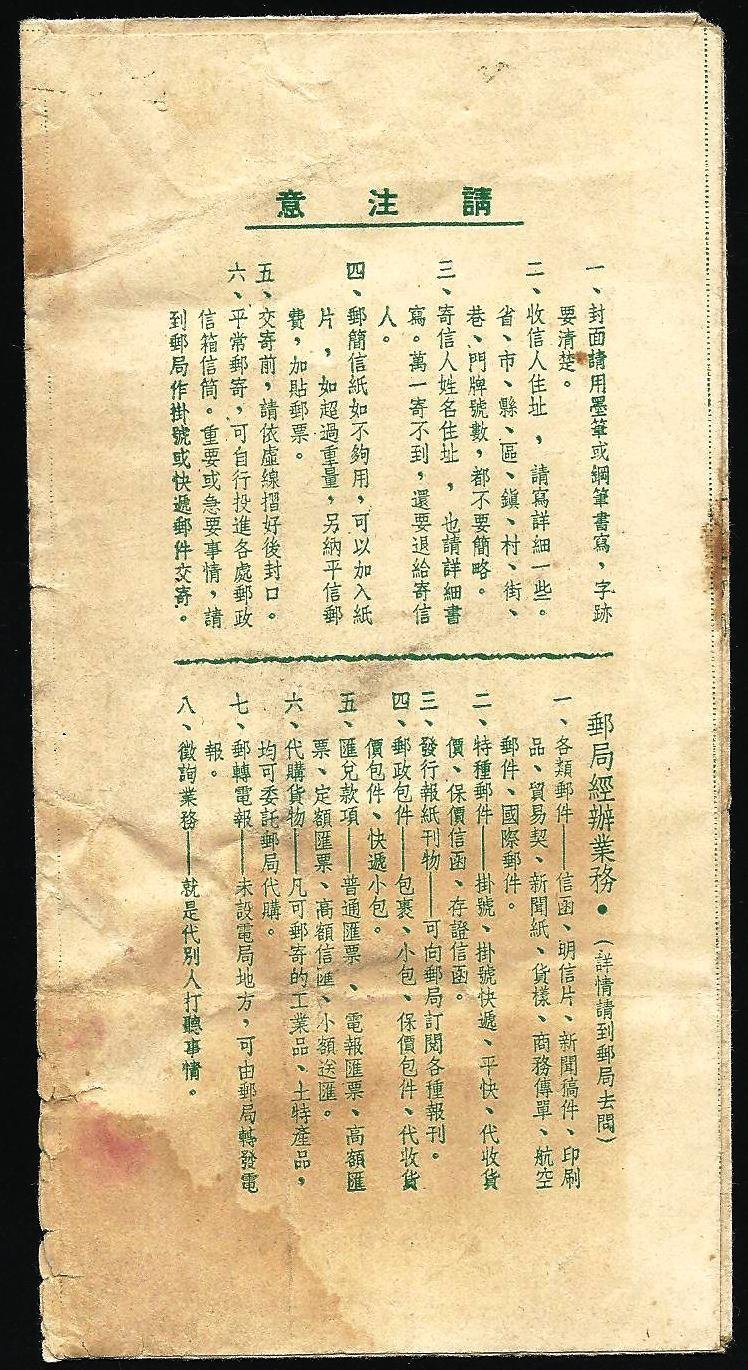 請注意
一、封面請用墨筆或鋼筆書寫,字跡
要清楚。
二、收信人住址,請寫詳細一些。
省、市、縣、區、鎮、村、街、
巷、門牌號數,都不要簡略。
三、寄信人姓名住址,也請詳細書
寫。萬一寄不到,還要退給寄信
人。
四、郵簡信紙如不夠用,可以加入紙
片,如超過重量,另納平信郵
費,加貼郵票。
五、交寄前,請依虛線摺好後封口。
六、平常郵寄,可自行投進各處郵政
信箱信筒。重要或急要事情,請
到郵局作掛號或快遞郵件交寄。
郵局經辦業務•(詳情請到郵局去問)
一、各類郵件——信函、明信片、新聞稿件、印刷
品、貿易契、新聞紙、貨樣、商務傳單、航空
郵件、國際郵件。
二、特種郵件——掛號、掛號快遞、平快、代收貨
價、保價信函、存證信函。
三、發行報紙刊物——可向郵局訂閱各種報刊。
四、郵政包件——包裹、小包、保價包件、代收貨
價包件、快遞小包。
五、匯兌款項——普通匯票、電報匯票、高額匯
票、定額匯票、高額信匯、小額送匯。
六、代購貨物——凡可郵寄的工業品、土特產品,
均可委託郵局代購。
七、郵轉電報——未設電局地方,可由郵局轉發電
報。
八、徵詢業務——就是代別人打聽事情。